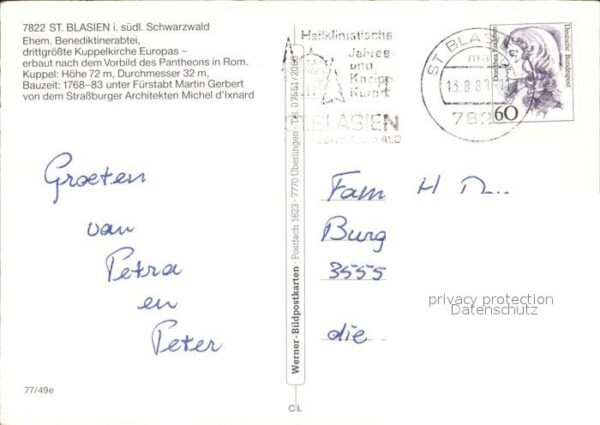 7822 ST. BLASIEN i. südl. Schwarzwald
Ehem. Benediktinerabtei,
drittgrößte Kuppelkirche Europas –
erbaut nach dem Vorbild des Pantheons in Rom.
Kuppel: Höhe 72 m, Durchmesser 32 m,
Bauzeit: 1768–83 unter Fürstabt Martin Gerbert
von dem Straßburger Architekten Michel d'Ixnard
Heilklimatische
Jahres-
und
Kneipp
Kurort
ST. BLASIEN
ST BLAS
15.8.8
782
Deutsche Bundespost
60
Groeten
van
Petra
en
Peter
Werner-Bildpostkarten · Postfach 1623 · 7770 Überlingen · Tel. 07551/
Fam H
Burg
3555
die.
privacy protection
Datenschutz
77/49e
CL